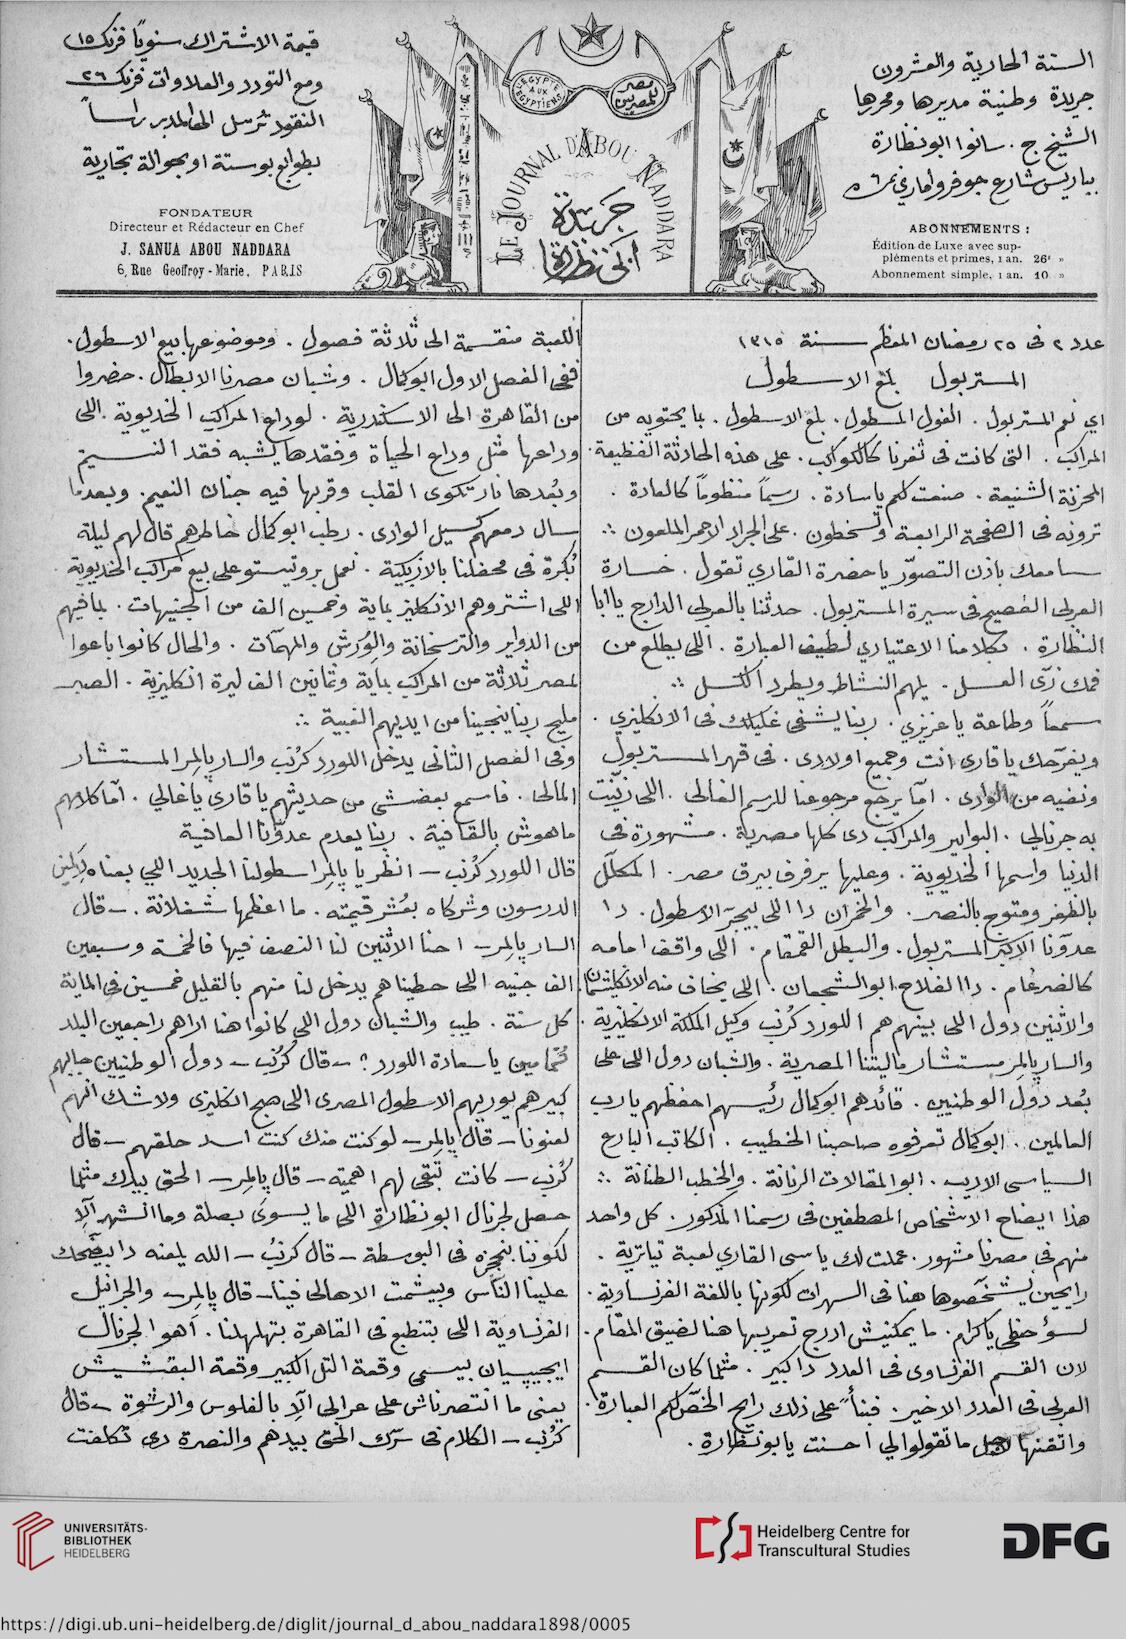 السنة الحادية والعشرون
جريدة وطنية مديرها ومحررها
الشيخ ج. سانوا ابونظارة
بباريس شارع جوفروا ماري نمر ٦
ABONNEMENTS :
Édition de Luxe avec sup-
pléments et primes, 1 an. 26f »
Abonnement simple, 1 an. 10 »
L'EGYPTE AUX EGYPTIENS
مصر للمصريين
LE JOURNAL D'ABOU NADDARA
جريدة
ابي نظارة
قيمة الاشتراك سنويًا فرنك ١٥
ومع التورد والعلاوات فرنك ٢٦
النقود ترسل الى المدير راساً
بطوابع بوستة او بحوالة تجارية
FONDATEUR
Directeur et Rédacteur en Chef
J. SANUA ABOU NADDARA
6, Rue Geoffroy-Marie, PARIS
عدد ٢ فى ٢٥ رمضان المعظم سنة ١٣١٥
المستربول بلع الاسطول
اي نعم المستربول. الغول المسطول. بلع الاسطول. بما يحتويه من
المراكب. التى كانت فى ثغرنا كالكواكب. على هذه الحادثة الفظيعة.
المحزنة الشنيعة. صنعت لكم ياسادة. رسماً منظوماً كالعادة.
ترونه فى الصفحة الرابعة وتسخطون. على الجراد الاحمر الملعون
سامعك باذن التصوّر ياحضرة القاري تقول. خسارة
العربى الفصيح فى سيرة المستربول. حدثنا بالعربى الدارج يا ابا
النظارة. بكلامنا الاعتيادي لطيف العبارة. اللى يطلع من
فمك زى العسل. يلهم النشاط ويطرد الكسل
سمعاً وطاعة ياعزيزي. ربنا يشفى غليلك فى الانكليزي.
ويفرّحك ياقارى انت وجميع اولادى. فى قهر المستربول
ونفيه من الوادى. امّا يرجع مرجوعنا للرسم الغالى. اللى زيّنت
به جرنالى. البوابير والمراكب دى كلها مصرية. مشهورة فى
الدنيا واسمها الخديوية. وعليها يرفرف بيرق مصر. المكلّل
بالظفر ومتوج بالنصر. والخمران دا اللى بيجرّ الاسطول. دا
عدوّنا الاكبر المستربول. والبطل القمقام. اللى واقف امامه
كالضرغام. دا الفلاح ابو الشجعان. اللى يخاف منه الانكليتمان.
والاثنين دول اللى بينهم هم اللورد كرنب وكيل الملكة الانكليزية.
والسار پالمر مستشار ماليتنا المصرية. والشبان دول اللى على
بُعد دول الوطنيين. قائدهم ابوكمال رئيسهم احفظهم يارب
العالمين. ابوكمال تعرفوه صاحبنا الخطيب. الكاتب البارع
السياسى الاديب. ابو المقالات الرنانة. والخطب الطنانة
هذا ايضاح الاشخاص المصطفين فى رسمنا المذكور. كل واحد
منهم فى مصرنا مشهور. عملت لك ياسى القاري لعبة تياترية.
رايحين يشخّصوها هنا فى السهرات لكونها باللغة الفرنساوية.
لسؤ حظى ياكرام. ما يمكنيش ادرج تعريبها هنا لضيق المقام.
لان القسم الفرنساوى فى العدد دا كبير. مثلما كان القسم
العربى فى العدد الاخير. فبناءً على ذلك رايح الخّص لكم العبارة.
واتقنها لاجل ما تقولوا لي احسنت يابونظارة.
اللعبة منقسمة الى ثلاثة فصول. وموضوعها بيع الاسطول.
ففى الفصل الاول ابوكمال. وشبان مصرنا الابطال. حضروا
من القاهرة الى الاسكندرية. لوداع المراكب الخديوية. اللى
وداعها مثل وداع الحياة وفقدها يشبه فقد النسيم
وبُعدها نار تكوى القلب وقربها فيه جنان النعيم. وبعد ما
سال دمعهم كسيل الوادى. رطب ابوكمال خاطرهم قال لهم ليلة
بُكرة فى محفلنا بالازبكية. نعمل بروتيستو على بيع مراكب الخديوية.
اللى اشتروهم الانكليز بماية وخمسين الف من الجنيهات. بما فيهم
من الدواير والترسخانة والوُرش والمهمّات. والحال كانوا باعوا
لمصر ثلاثة من المراكب بماية وثمانين الف ليرة انكليزية. الصبر
مليح ربنا ينجينا من ايديهم الغبية
وفى الفصل الثانى يدخل اللورد كرُنب والسار پالمر المستشار
المالى. فاسمع بعض شى من حديثهم ياقارى ياغالي. امّا كلامهم
ماهوش بالقافية. ربنا يعدم عدوّنا العافية
قال اللورد كرُنب - انظر يا پالمر اسطولنا الجديد اللي بعناه
الدرسون وشركاه بعُشر قيمته. ما اعظمها شغلانة. - قال
السار پالمر - احنا الاثنين لنا النصف فيها فالخمسة وسبعين
الف جنيه اللى حطينا هم يدخل لنا منهم بالقليل خمسين فى الماية
كل سنة. طيب والشبان دول اللى كانوا هنا اراهم راجعين البلد
همّا مين ياسعادة اللورد؟ - قال كرُنب - دول الوطنيين جايبهم
كبيرهم يوريهم الاسطول المصرى اللى صبح انكليزى ولاشك انهم
لعنونا - قال پالمر - لوكنت منك كنت اسد حلقهم - قال
كرُنب - كانت تبقى لهم اهميّة - قال پالمر - الحق بيدك مثلما
حصل لجرنال ابونظارة اللى مايسوى بصلة وما انشهر الّا
لكوننا بنحجزه فى البوسطة - قال كرنب - الله يلعنه دا بيضحك
علينا النّاس وبيشمت الاهالى فينا - قال پالمر - والجرانيل
الفرنساوية اللى بتنطبع فى القاهرة بتهلهلنا. اهو الجرنال
ايجيپسيان بيسمى وقعة التل الكبير وقعة البقشيش
يعنى ما انتصرناش على عرابى الّا بالفلوس والرشوة - قال
كرُنب - الكلام فى سرّك الحق بيدهم والنصرة دى تكلفت
UNIVERSITÄTS-
BIBLIOTHEK
HEIDELBERG
Heidelberg Centre for
Transcultural Studies
DFG
https://digi.ub.uni-heidelberg.de/diglit/journal_d_abou_naddara1898/0005